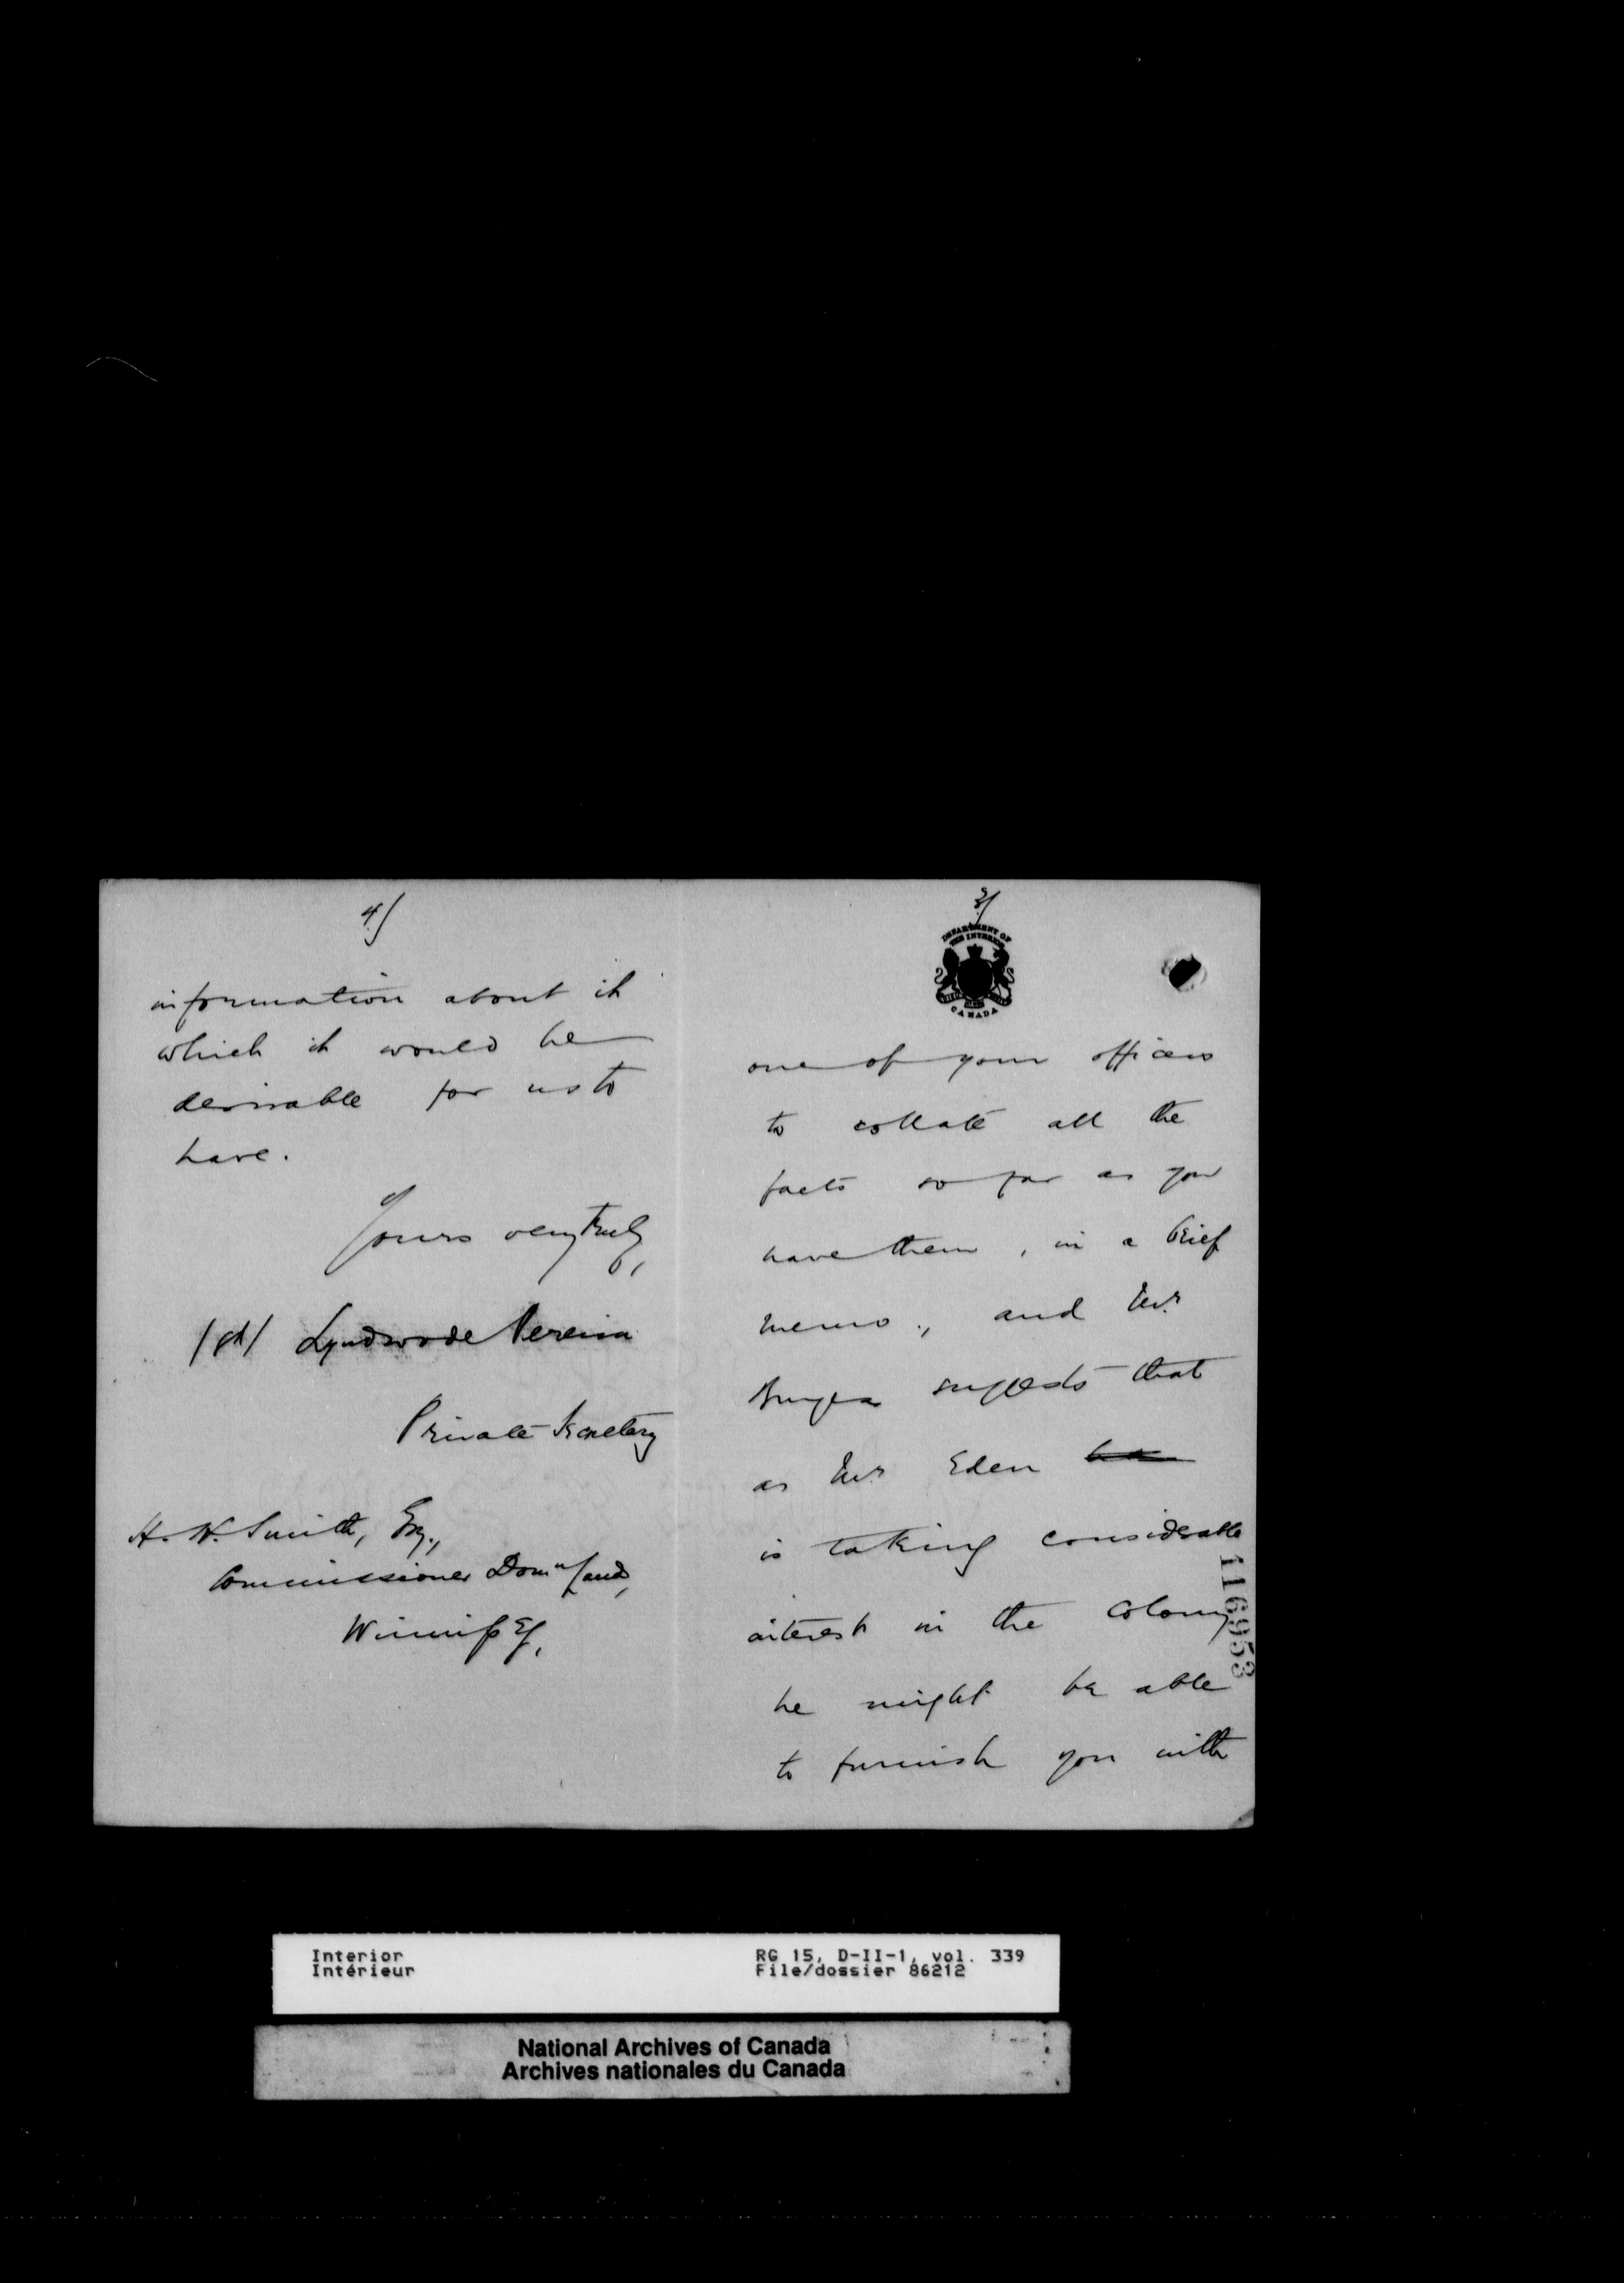 4/
information about it
which it would be
desirable for us to
have.
Yours very truly,
(sd) Lyndwode Pereira
Private Secretary
H. H. Smith, Esq.,
Commissioner Domn Lands,
Winnipeg.
3/
DEPARTMENT OF
THE INTERIOR
CANADA
one of your officers
to collate all the
facts so far as you
have them, in a brief
memo., and Mr.
Burgess suggests that
as Mr. Eden
is taking considerable
interest in the Colony
he might be able
to furnish you with
116953
Interior
Intérieur
RG 15, D-II-1, vol. 339
File/dossier 86212
National Archives of Canada
Archives nationales du Canada